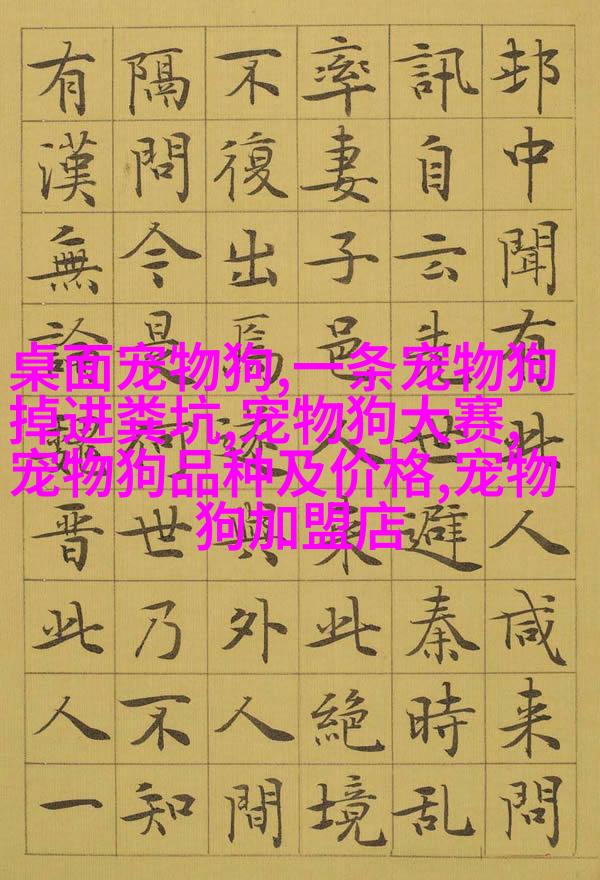 邨中聞有此人咸来問
訊自云先世避秦時乱
率妻子邑人来此絶境
不復出焉遂與外人間
隔問今是何世乃不知
有漢無論魏晋此人一
桌面宠物狗,一条宠物狗
掉进粪坑,宠物狗大赛,
宠物狗品种及价格,宠物
狗加盟店